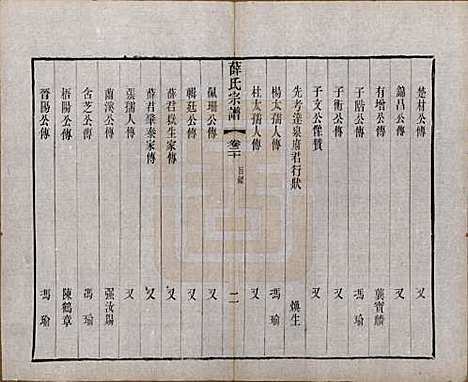 楚材公傳 又
錦昌公傳 又
有增公傳 龔寶麟
子階公傳 馮瑜
子衡公傳 又
子文公像贊 又
先考達泉府君行狀 煥生
楊太孺人傳 馮瑜
杜太孺人傳 又
薛氏宗譜 卷二十 目錄 二
佩珊公傳 又
輯廷公傳 又
薛君 生家傳 又
薛君肇泰家傳 又
張孺人傳 張汝錫
蘭溪公傳 馮瑜
含芝公傳 又
梧陽公傳 陳鶴章
晉陽公傳 馮瑜